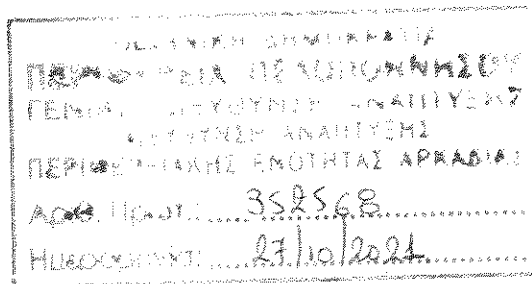 ΕΛΛΗΝΙΚΗ ΔΗΜΟΚΡΑΤΙΑ
ΠΕΡΙΦΕΡΕΙΑ ΠΕΛΟΠΟΝΝΗΣΟΥ
ΓΕΝΙΚΗ ΔΙΕΥΘΥΝΣΗ ΑΝΑΠΤΥΞΗΣ
ΔΙΕΥΘΥΝΣΗ ΑΝΑΠΤΥΞΗΣ
ΠΕΡΙΦΕΡΕΙΑΚΗΣ ΕΝΟΤΗΤΑΣ ΑΡΚΑΔΙΑΣ
Αριθ. Πρωτ.: 352568
Ημερομηνία: 27/10/2021